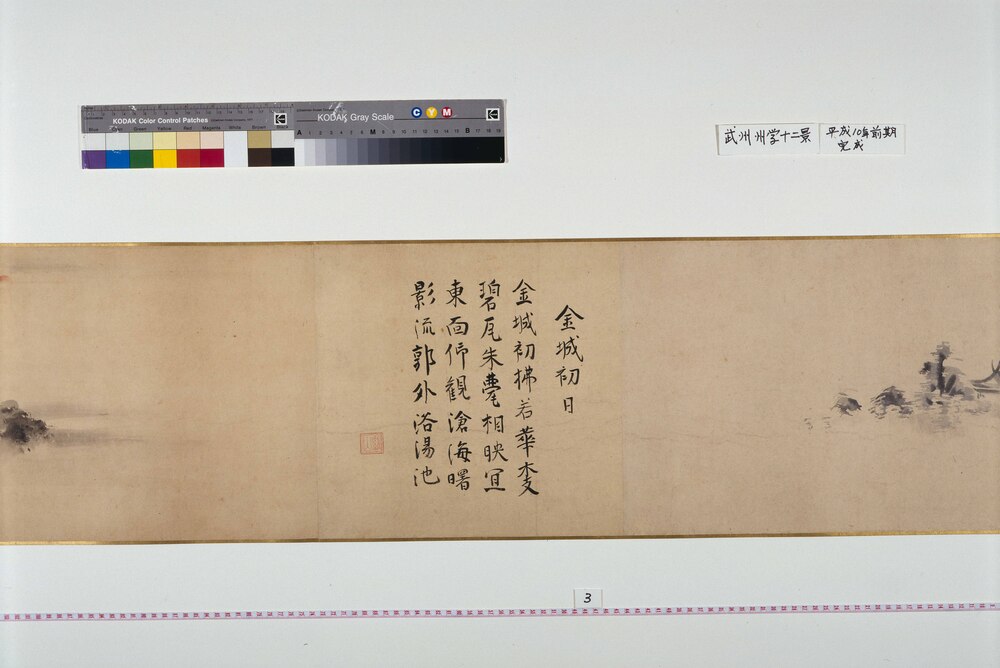 KODAK Color Control Patches
Blue Cyan Green Yellow Red Magenta White Brown Black
KODAK Gray Scale
C Y M
A 1 2 3 4 5 6 M 8 9 10 11 12 13 14 15 B 17 18 19
武州州学十二景
平成10年前期
完成
金城初日
金城初拂若華枝
碧瓦朱甍相映宜
東面仰觀滄海曙
影流郭外浴湯池
3